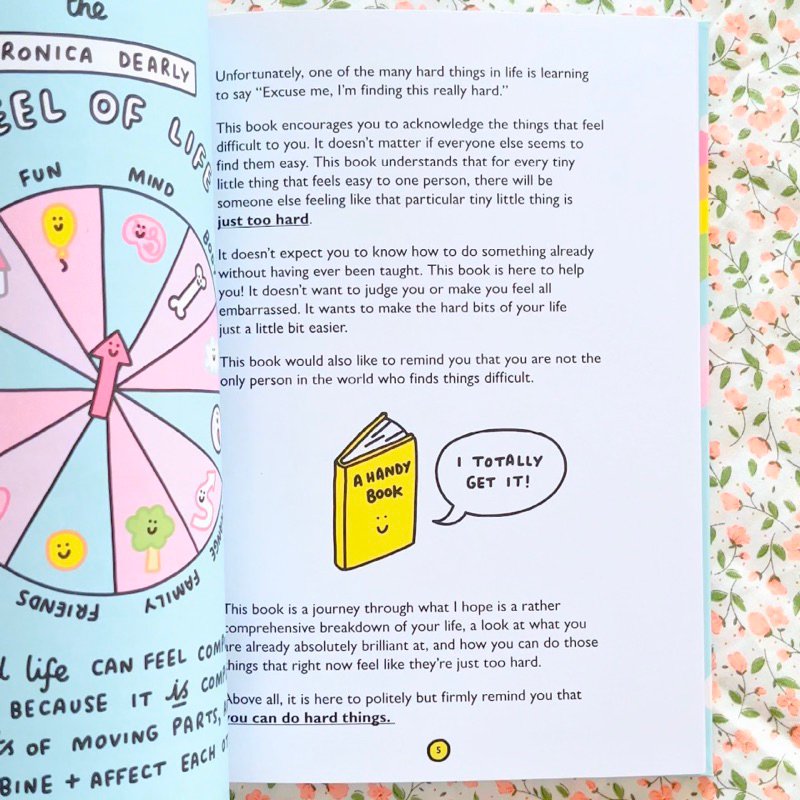 the
RONICA DEARLY
EEL OF LIFE
FUN
MIND
FAMILY
FRIENDS
life CAN FEEL
BECAUSE IT is
OF MOVING PARTS,
+ AFFECT EACH
Unfortunately, one of the many hard things in life is learning
to say “Excuse me, I’m finding this really hard.”
This book encourages you to acknowledge the things that feel
difficult to you. It doesn’t matter if everyone else seems to
find them easy. This book understands that for every tiny
little thing that feels easy to one person, there will be
someone else feeling like that particular tiny little thing is
just too hard.
It doesn’t expect you to know how to do something already
without having ever been taught. This book is here to help
you! It doesn’t want to judge you or make you feel all
embarrassed. It wants to make the hard bits of your life
just a little bit easier.
This book would also like to remind you that you are not the
only person in the world who finds things difficult.
A HANDY
BOOK
I TOTALLY
GET IT!
This book is a journey through what I hope is a rather
comprehensive breakdown of your life, a look at what you
are already absolutely brilliant at, and how you can do those
things that right now feel like they’re just too hard.
Above all, it is here to politely but firmly remind you that
you can do hard things.
5